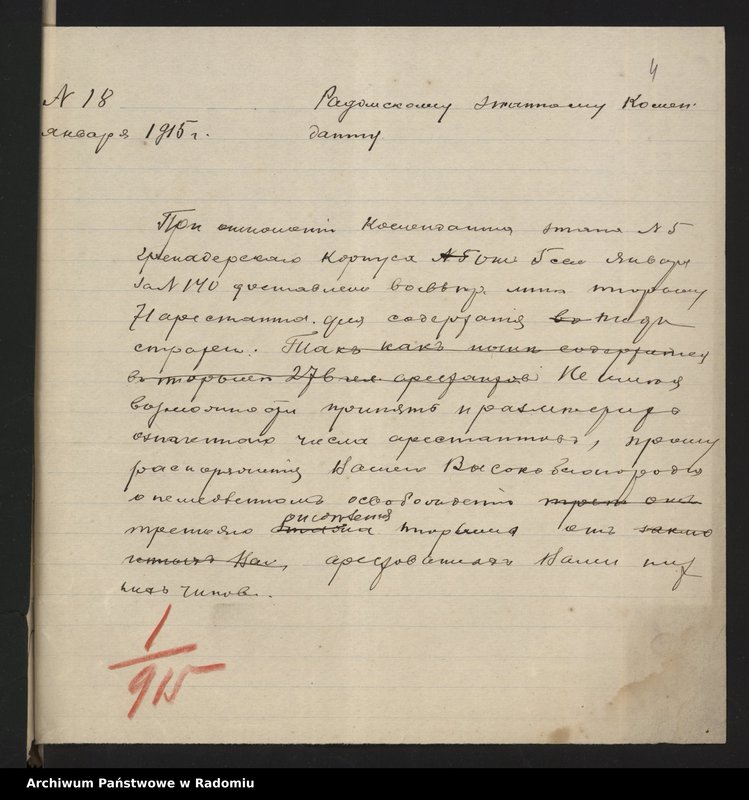 4
N 18
января 1915 г.
Радомскому этапному Комен-
данту
При отношении Коменданта этапа N 5
гренадерскаго корпуса 5 сего Января
за N 140 доставлено во тюрьму
71 арестанта для содержания во под
стражею. Такъ какъ содержится
въ тюрьме 276 чел. арестантов Не имея
возможности принять и разместить
означеннаго числа арестантовъ, прошу
распоряжения Вашего Высокоблагородия
о немедленномъ освобождении
третьяго отделения тюрьмы отъ
арестованныхъ Вами ниж
нихъ чиновъ.
1
915
Archiwum Państwowe w Radomiu